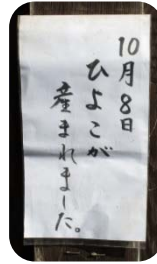 10月8日
ひよこが
産まれました。